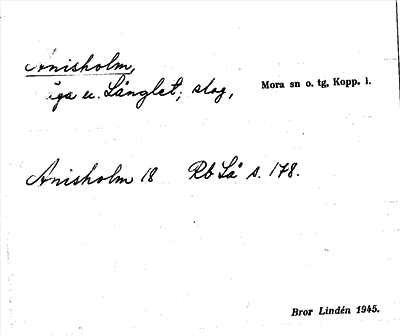 Anisholm,
äga u. Långlet; slog,
Mora sn o. tg, Kopp. l.
Anisholm 18 Rb Lå s. 178.
Bror Lindén 1945.